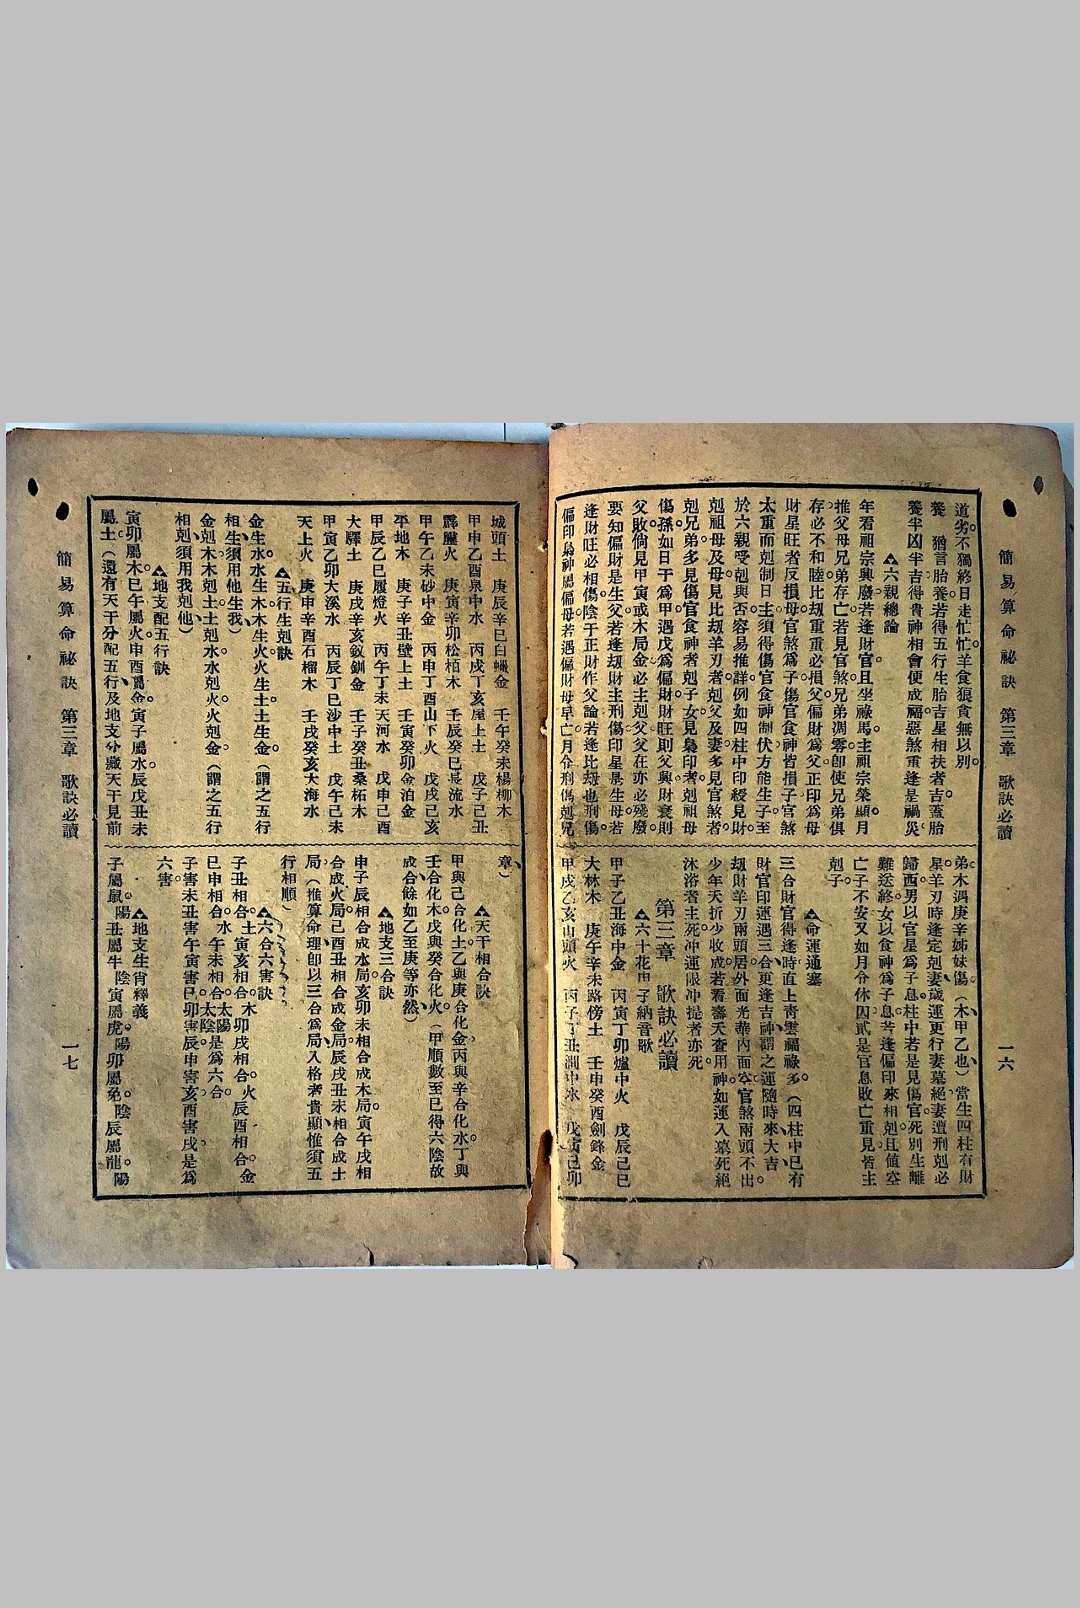 簡易算命祕訣　第三章　歌訣必讀　一六
道劣。不獨終日走忙忙。羊食狼貪無以別。
養　猶言胎養若得五行生胎吉星相扶者吉蓋胎
養半凶半吉得貴神相會便成福惡煞重逢是禍災
▲六親總論
年看祖宗興廢若逢財官且坐祿馬主祖宗榮顯月
推父母兄弟存亡若見官煞兄弟凋零卽使兄弟俱
存必不和陸比刼重重必損父偏財為父正印為母
財星旺者反損母官煞為子傷官食神皆損子官煞
太重而剋制日主須得傷官食神制伏方能生子至
於六親受剋與否容易推詳例如四柱中印綬見財
剋祖母及母見比刼羊刃者剋父及妻多見官煞者
剋兄弟多見傷官食神者剋子女見梟印者剋祖母
傷孫如日干為甲遇戊為偏財財旺則父興財衰則
父敗倘見甲寅或木局金必主剋父父在亦必殘廢
要知偏財是生父若逢刼財主刑傷印星是生母若
逢財旺必相傷陰于正財作父論若逢比刼也刑傷
偏印梟神是偏母若遇偏財母早亡月令刑偶剋兄
弟木遇庚辛姊妹傷（木甲乙也）當生四柱有財
星羊刃時逢定剋妻歲運更行妻墓絕妻遭刑剋必
歸西男以官星為子息柱中若是見傷官死別生離
難送終女以食神為子息若逢偏印來相剋且値空
亡子不安又如月令休囚貳是官息敗亡重見皆主
剋子
▲命運通塞
三合財官得逢時直上靑雲福祿多（四柱中已有
財官印運遇三合更逢吉神謂之運隨時來大吉
刼財羊刃兩頭居外面光華內面空官煞兩頭不出
少年夭折少收成若看壽夭查用神如運入墓死絕
沐浴者主死沖運限沖提者亦死
第三章　歌訣必讀
▲六十花甲子納音歌
甲子乙丑海中金　丙寅丁卯爐中火　戊辰己巳
大林木　庚午辛未路傍土　壬申癸酉劍鋒金
甲戌乙亥山頭火　丙子丁丑澗中水　戊寅己卯
城頭土　庚辰辛巳白蠟金　壬午癸未楊柳木
甲申乙酉泉中水　丙戌丁亥屋上土　戊子己丑
霹靂火　庚寅辛卯松栢木　壬辰癸巳長流水
甲午乙未砂中金　丙申丁酉山下火　戊戌己亥
平地木　庚子辛丑壁上土　壬寅癸卯金泊金
甲辰乙巳履燈火　丙午丁未天河水　戊申己酉
大驛土　庚戌辛亥釵釧金　壬子癸丑桑柘木
甲寅乙卯大溪水　丙辰丁巳沙中土　戊午己未
天上火　庚申辛酉石榴木　壬戌癸亥大海水
▲五行生剋訣
金生水水生木木生火火生土土生金（謂之五行
相生須用他生我）
金剋木木剋土土剋水水剋火火剋金（謂之五行
相剋須用我剋他）
▲地支配五行訣
寅卯屬木巳午屬火申酉屬金亥子屬水辰戌丑未
屬土（還有天干分配五行及地支分藏天干見前
章）
▲天干相合訣
甲與己合化土乙與庚合化金丙與辛合化水丁與
壬合化木戊與癸合化火（甲順數至己得六陰故
成合餘如乙至庚等亦然）
▲地支三合訣
申子辰相合成水局亥卯未相合成木局寅午戌相
合成火局巳酉丑相合成金局辰戌丑未相合成土
局（推算命理卽以三合為局入格者貴顯惟須五
行相順）
▲六合六害訣
子丑相合。土寅亥相合。木卯戌相合。火辰酉相合。金
巳申相合。水午未相合。太陽太陰是為六合
子害未丑害午寅害巳卯害辰申害亥酉害戌是為
六害
▲地支生肖釋義
子屬鼠。陽丑屬牛。陰寅屬虎。陽卯屬兔。陰辰屬龍。陽
簡易算命祕訣　第三章　歌訣必讀　一七